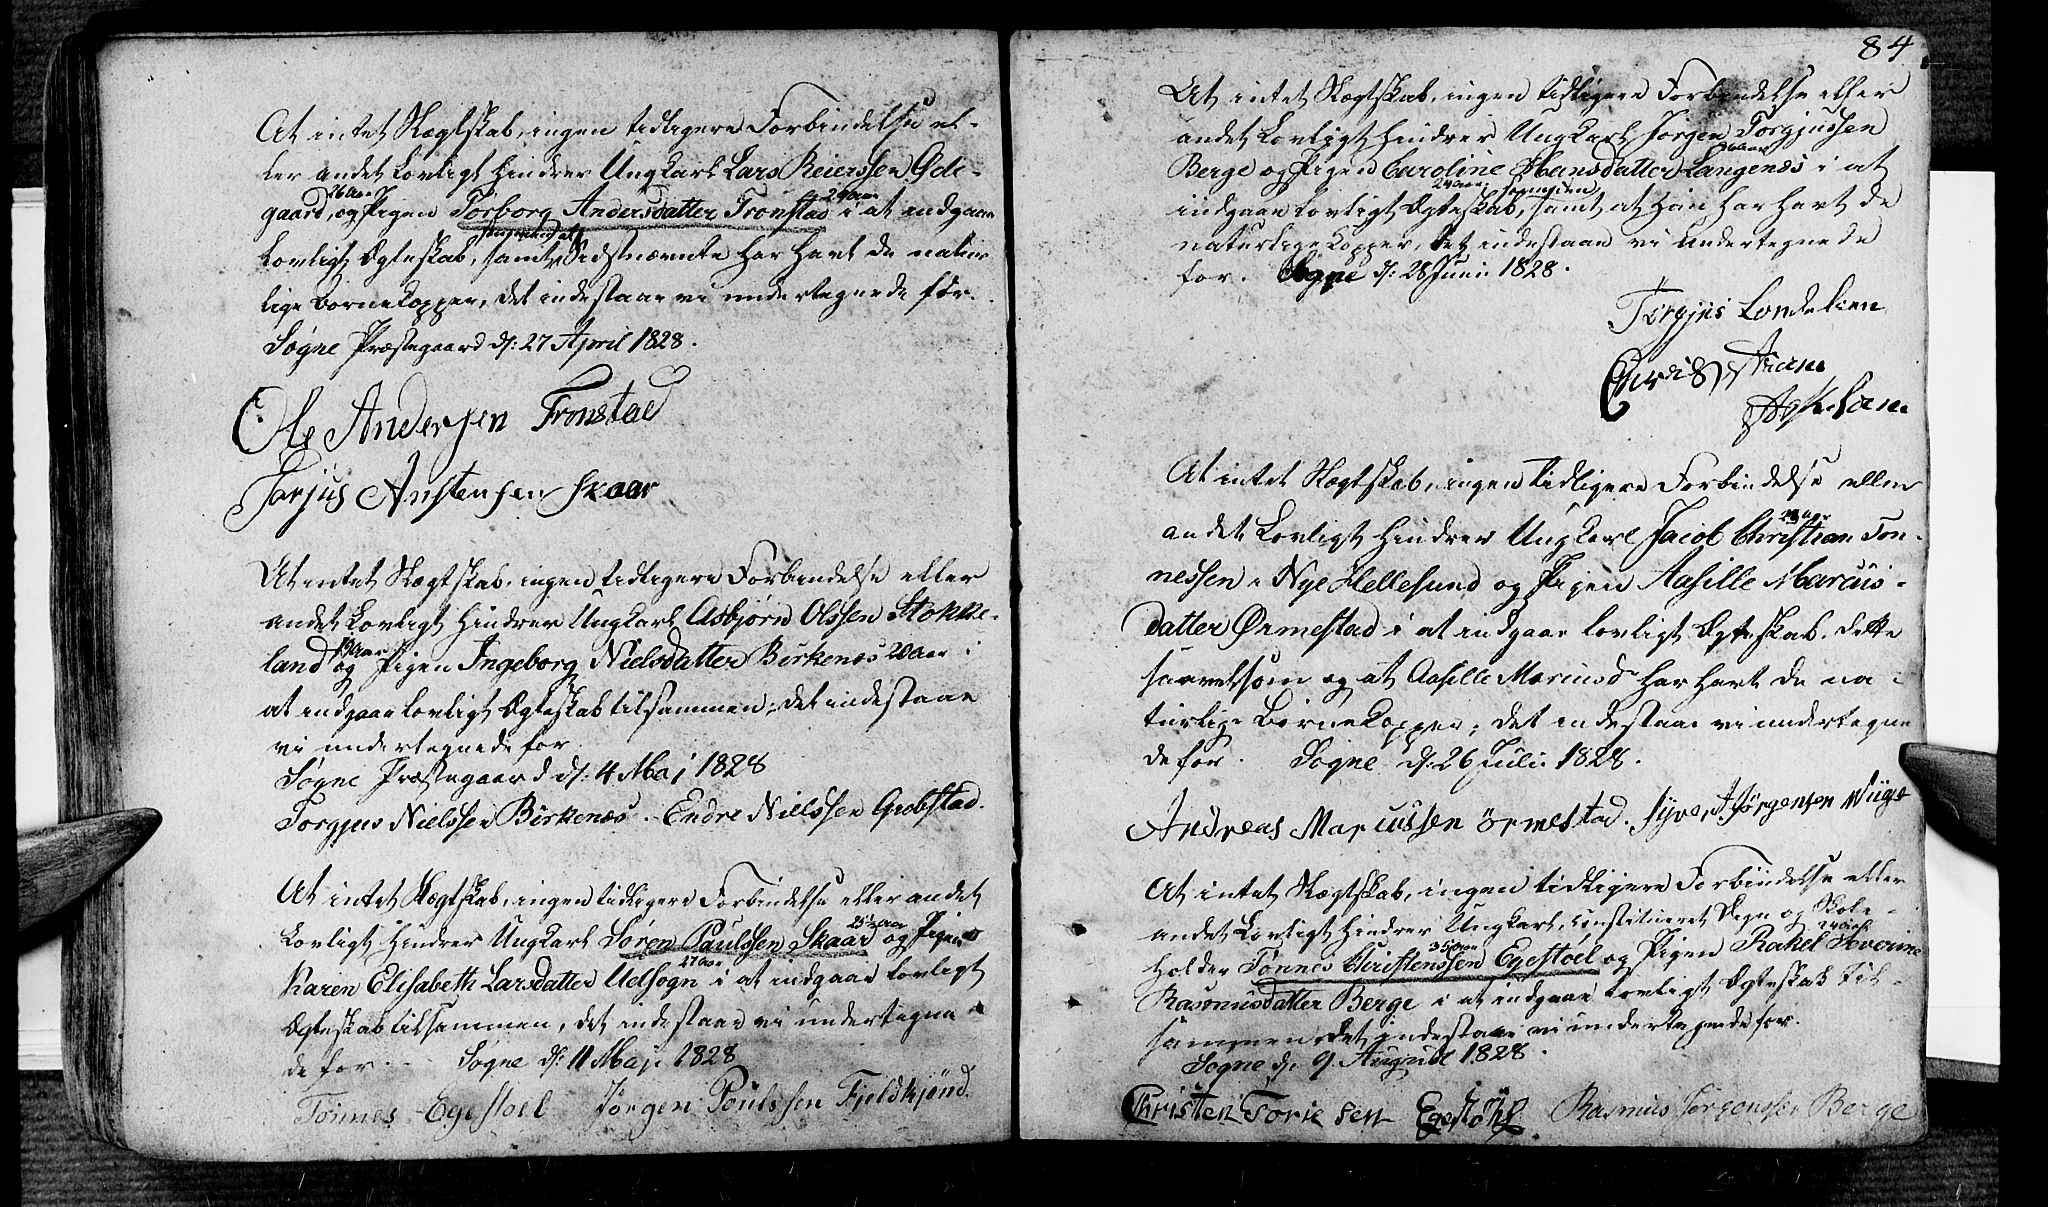 At intet Slægtskab, ingen tidligere Forbindelse el-
ler andet Lovligt Hindrer Ungkarl Lars Reierssen Øde-
26 Aar 24 Aar
gaard, og Pigen Torborg Andersdatter Tronstad i at indgaae
Lovligt Ægteskab, samt at Sidstnævnte har havt de natur
lige Børnekopper, det indestaae vi undertegnede for.
Søgne Præstegaard d: 27 April 1828.
Ole Andersen Tronstad
Tarjus Anstensen Skaar
At intet Slægtskab, ingen tidligere Forbindelse eller
andet Lovligt Hindrer Ungkarl Asbjørn Olssen Stokke-
land og Pigen Ingeborg Nielsdatter Birkenæs 20 Aar i
at indgaae lovligt Ægteskab tilsammen, det indestaae
vi undertegnede for.
Søgne Præstegaard d: 4 Maj 1828
Torgjus Nielssen Birkenæs. Endre Nielssen Grobstad.
At intet Slægtskab, ingen tidligere Forbindelse eller andet
Lovligt Hindrer Ungkarl Søren Paulssen Skaar og Pigen
27 Aar
Karen Elisabeth Larsdatter Udsøgn i at indgaae lovligt
Ægteskab tilsammen, det indestaae vi undertegne
de for. Søgne d: 11 Maji 1828
Tønnes Egestoel Jørgen Poulssen Fjeldkjønd.
84
At intet Slægtskab, ingen tidligere Forbindelse eller
andet Lovligt Hindrer Ungkarl Jørgen Torgjussen
Berge og Pigen Caroline Hansdatter Langenæs i at
24 Aar
indgaae lovligt Ægteskab, samt at Han har havt de
naturlige Kopper, det indestaae vi undertegnede
for. Søgne d: 28 Juni 1828.
Torgjus
At intet Slægtskab, ingen tidligere Forbindelse eller
andet Lovligt Hindrer Ungkarl Jacob Christian Tøn-
nessen i Nye Hellesund og Pigen Aasille Marcus-
datter Ørmestad i at indgaae lovligt Ægteskab, dette
saavelsom og at Aasille Marcusd har havt de na-
turlige Børnekopper, det indestaae vi undertegne
de for. Søgne d: 26 Juli 1828.
Andreas Marcussen Ørmestad. Syvert Jørgensen
At intet Slægtskab, ingen tidligere Forbindelse eller
andet Lovligt Hindrer Ungkarl, constitueret Degn og Skole-
35 Aar 24 Aar
holder Tønnes Christenssen Egestoel og Pigen Rakel Severine
Rasmusdatter Berge i at indgaae lovligt Ægteskab til-
sammen, det indestaae vi undertegnede for.
Søgne d. 9. August 1828.
Christen Toriesen Egestøhl Rasmus Jørgenssen Berge